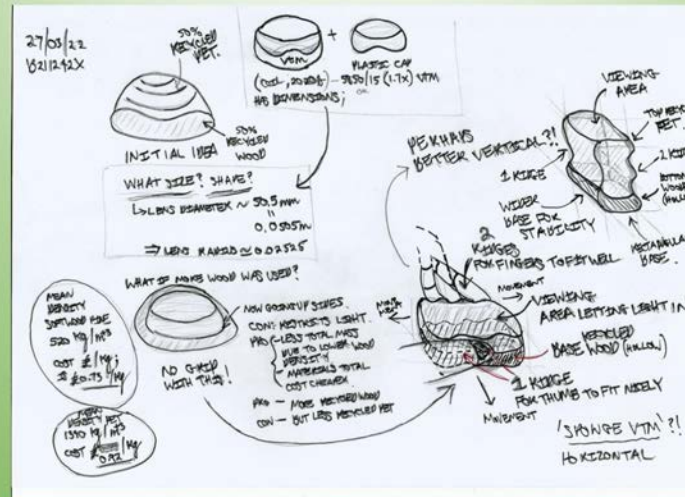 27/03/22
50%
RECYCLED
PET.
50%
RECYCLED
WOOD
INITIAL IDEA
VTM
+
PLASTIC CAP
VTM
HAS DIMENSIONS;
WHAT SIZE? SHAPE?
LENS DIAMETER ~ 50.5mm
=
0.0505m
WHAT IF MORE WOOD WAS USED?
NOW GOING UP SIDES.
CON: RESTRICTS LIGHT.
PRO - LESS TOTAL MASS
DUE TO LOWER WOOD
DENSITY
- MATERIALS TOTAL
COST CHEAPER.
PRO - MORE RECYCLED WOOD
CON - BUT LESS RECYCLED PET
NO GRIP
WITH THIS!
MEAN
DENSITY
SOFTWOOD PINE
520 kg/m³
COST £/kg;
£0.75/kg
MEAN
DENSITY PET
kg/m³
COST £
0.92/kg
PERHAPS
BETTER VERTICAL?!
VIEWING
AREA
PET.
1 RIDGE
WIDER
BASE FOR
STABILITY
RECTANGULAR
BASE.
2
RIDGES
FOR FINGERS TO FIT WELL
MOVEMENT
VIEWING
AREA LETTING LIGHT IN
RECYCLED
BASE WOOD (HOLLOW)
1 RIDGE
FOR THUMB TO FIT NICELY
MOVEMENT
'SPONGE VTM'?!
HORIZONTAL